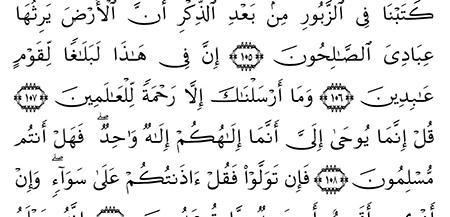 كَتَبْنَا فِى ٱلزَّبُورِ مِنۢ بَعْدِ ٱلذِّكْرِ أَنَّ ٱلْأَرْضَ يَرِثُهَا
عِبَادِىَ ٱلصَّـٰلِحُونَ ﴿١٠٥﴾ إِنَّ فِى هَـٰذَا لَبَلَـٰغًا لِّقَوْمٍ
عَـٰبِدِينَ ﴿١٠٦﴾ وَمَآ أَرْسَلْنَـٰكَ إِلَّا رَحْمَةً لِّلْعَـٰلَمِينَ ﴿١٠٧﴾
قُلْ إِنَّمَا يُوحَىٰٓ إِلَىَّ أَنَّمَآ إِلَـٰهُكُمْ إِلَـٰهٌ وَٰحِدٌ ۖ فَهَلْ أَنتُم
مُّسْلِمُونَ ﴿١٠٨﴾ فَإِن تَوَلَّوْا۟ فَقُلْ ءَاذَنتُكُمْ عَلَىٰ سَوَآءٍ ۖ وَإِنْ